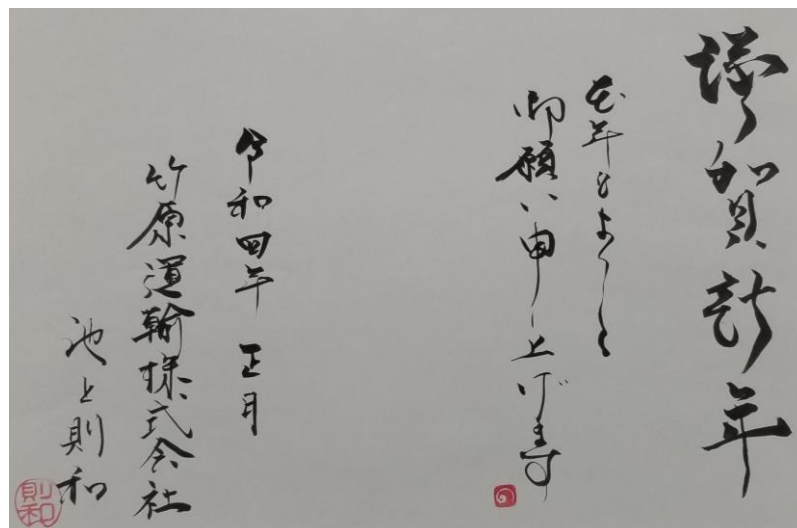 謹賀新年
本年もよろしく
御願い申し上げます
令和四年 正月
竹原運輸様式会社
池上則和
則和